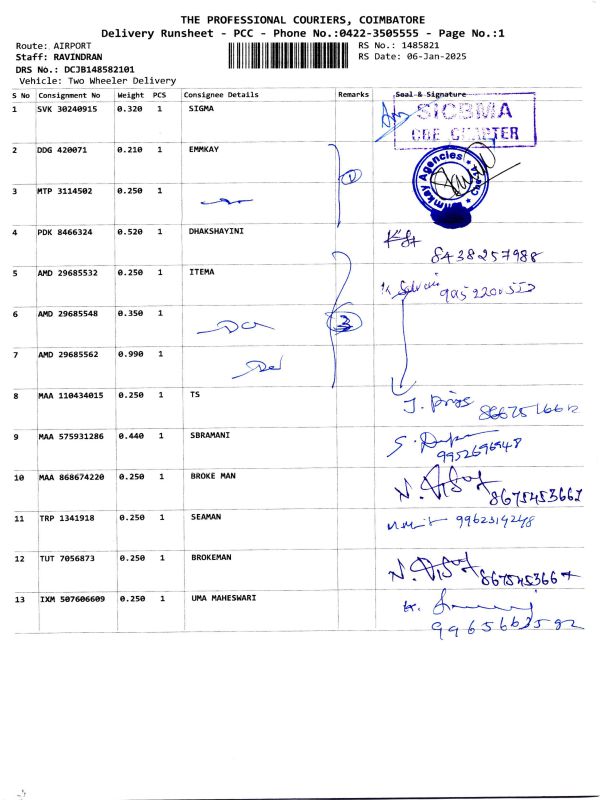 THE PROFESSIONAL COURIERS, COIMBATORE
Delivery Runsheet - PCC - Phone No.:0422-3505555 - Page No.:1
Route: AIRPORT
RS No.: 1485821
Staff: RAVINDRAN
RS Date: 06-Jan-2025
DRS No.: DCJB148582101
Vehicle: Two Wheeler Delivery
S No Consignment No Weight PCS Consignee Details Remarks Seal & Signature
1 SVK 30240915 0.320 1 SIGMA
CBE
2 DDG 420071 0.210 1 EMMKAY
Emmkay Agencies
3 MTP 3114502 0.250 1
4 PDK 8466324 0.520 1 DHAKSHAYINI
8438257988
5 AMD 29685532 0.250 1 ITEMA
6 AMD 29685548 0.350 1
3
7 AMD 29685562 0.990 1
8 MAA 110434015 0.250 1 TS
9 MAA 575931286 0.440 1 SBRAMANI
9952696948
10 MAA 868674220 0.250 1 BROKE MAN
11 TRP 1341918 0.250 1 SEAMAN
12 TUT 7056873 0.250 1 BROKEMAN
13 IXM 507606609 0.250 1 UMA MAHESWARI